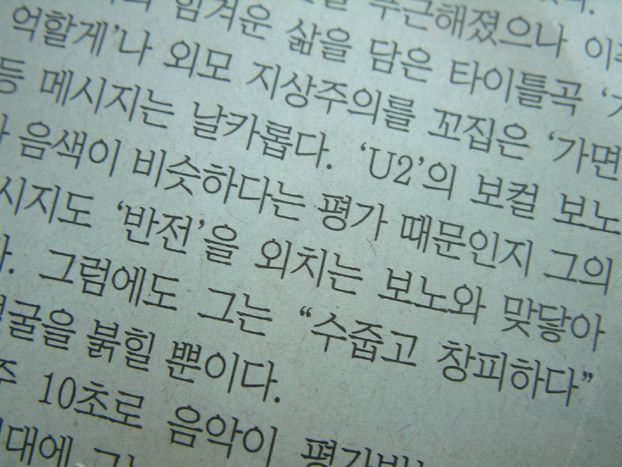 힘겨운 삶을 담은 타이틀곡
억할게’나 외모 지상주의를 꼬집은 ‘가면
등 메시지는 날카롭다. ‘U2’의 보컬 보노
음색이 비슷하다는 평가 때문인지 그의
시지도 ‘반전’을 외치는 보노와 맞닿아
그럼에도 그는 “수줍고 창피하다”
굴을 붉힐 뿐이다.
10초로 음악이